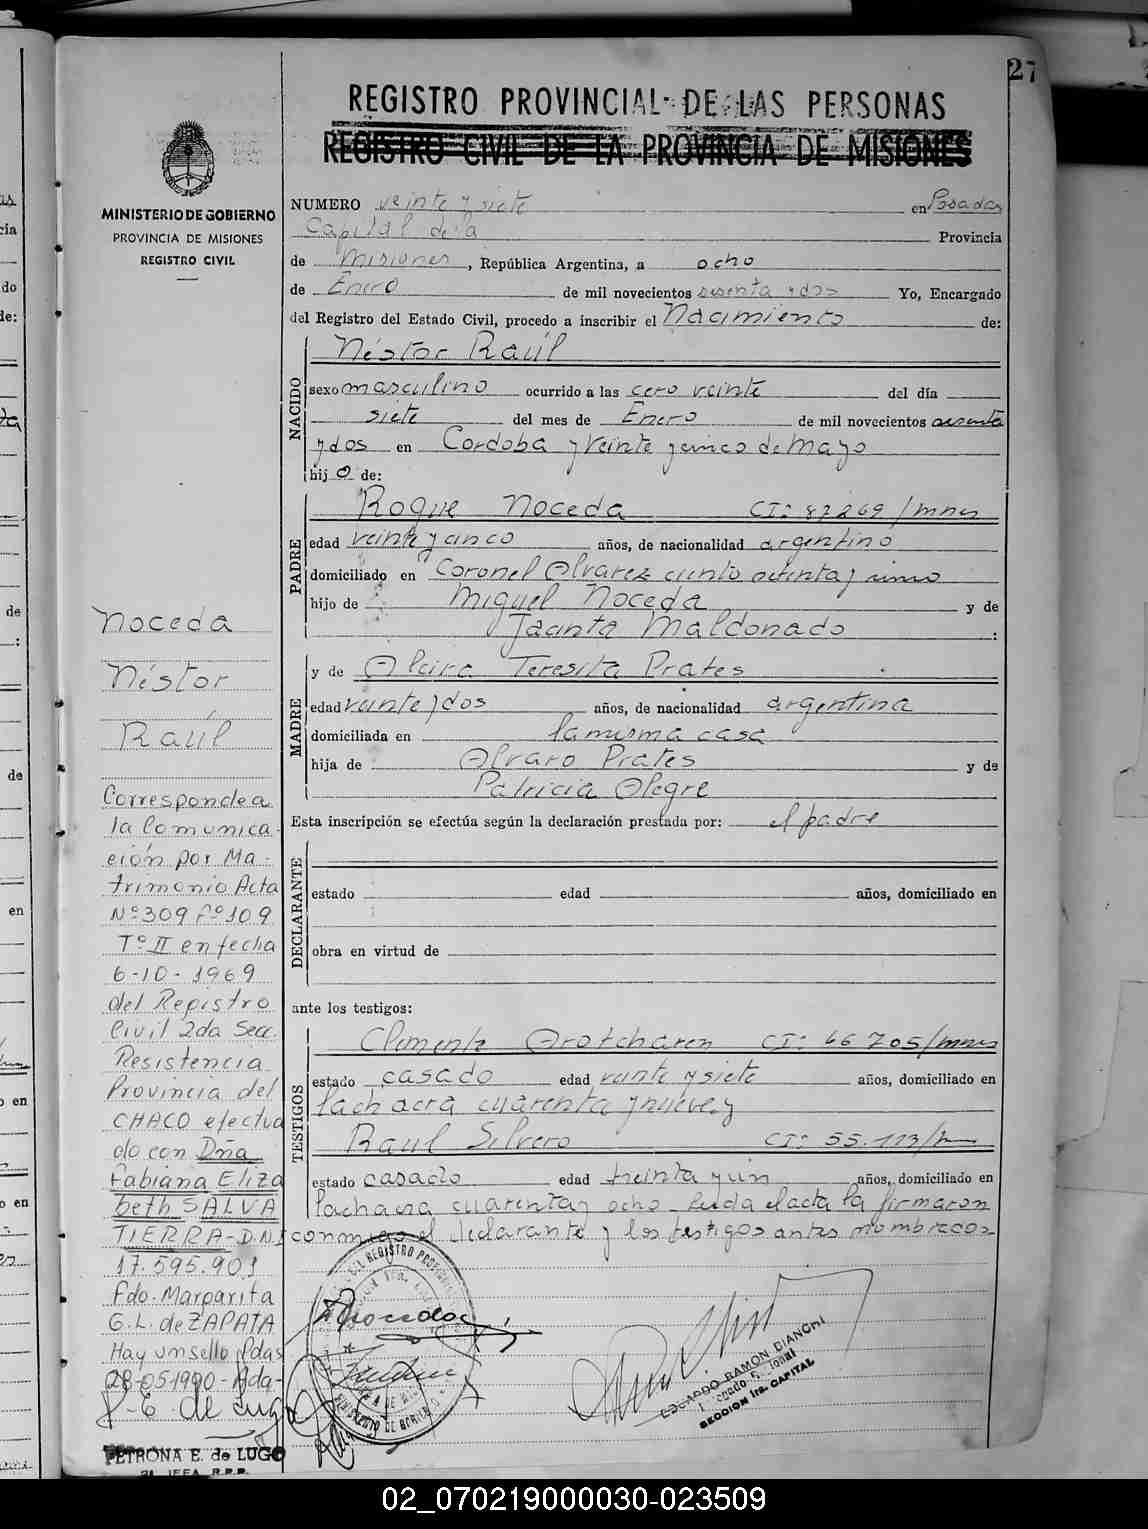 27
REGISTRO PROVINCIAL DE LAS PERSONAS
REGISTRO CIVIL DE LA PROVINCIA DE MISIONES
MINISTERIO DE GOBIERNO
PROVINCIA DE MISIONES
REGISTRO CIVIL
NUMERO veinte y siete en Posadas
Capital de la Provincia
de Misiones, República Argentina, a ocho
de Enero de mil novecientos sesenta y dos Yo, Encargado
del Registro del Estado Civil, procedo a inscribir el Nacimiento de:
NACIDO
Néstor Raúl
sexo masculino ocurrido a las cero veinte del día
siete del mes de Enero de mil novecientos sesenta
y dos en Cordoba y veinte y cinco de Mayo
hijo de:
PADRE
Roque Noceda CI: 87269/mns
edad veinte y cinco años, de nacionalidad argentino
domiciliado en Coronel Alvarez ciento ochenta y cinco
hijo de Miguel Noceda y de
Jacinta Maldonado :
MADRE
y de Alcira Teresita Prates
edad veinte y dos años, de nacionalidad argentina
domiciliada en la misma casa
hija de Alvaro Prates y de
Patricia Alegre
Esta inscripción se efectúa según la declaración prestada por: el padre
DECLARANTE
estado edad años, domiciliado en
obra en virtud de
ante los testigos:
TESTIGOS
Clemente CI: 66705/mns
estado casado edad veinte y siete años, domiciliado en
la chacra cuarenta y nueve y
Raul Silvero CI: 55.113/
estado casado edad treinta y un años, domiciliado en
la chacra cuarenta y ocho. Leida el acta la firmaron
conmigo el declarante y los testigos antes nombrados
Noceda
Néstor
Raúl
Corresponde a
la Comunica-
ción por Ma-
trimonio Acta
Nº 309 Fº 109
Tº II en fecha
6-10-1969
del Registro
Civil 2da Secc.
Resistencia
Provincia del
CHACO efectua
do con Dña
Fabiana Eliza
beth SALVA
TIERRA-D.N.I
17.595.901
Fdo. Margarita
G.L. de ZAPATA
Hay un sello Pdas
28-05-1990-
P. E de Lugo
PETRONA E. de LUGO
2a JEFA R.P.P.
EDUARDO RAMON BIANCHI
SECCION 1ra. CAPITAL
02_070219000030-023509